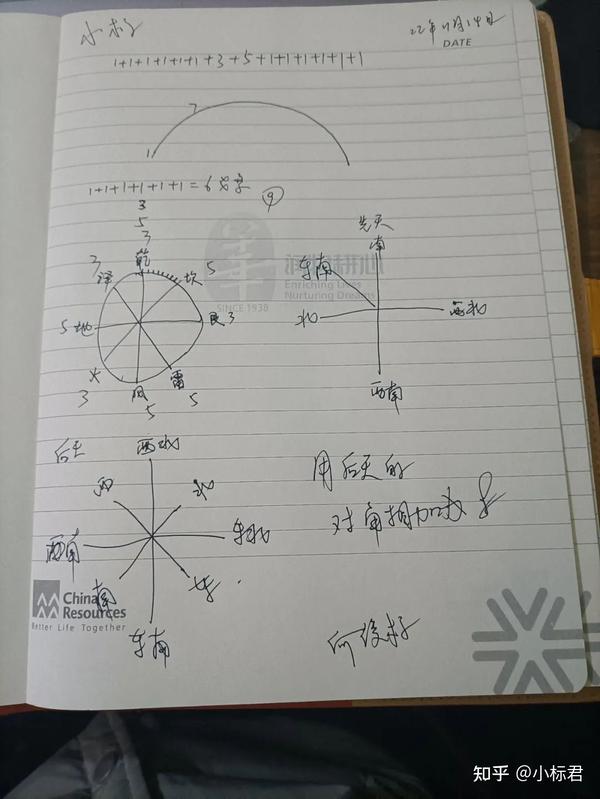 小标
22年11月14日
DATE
1+1+1+1+1+1+3+5+1+1+1+1+1+1
2
1
1+1+1+1+1+1=6
9
3
5
3
乾
3 泽
坎 5
5 地
艮 3
火
3
风
5
雷
5
SINCE 1938
Enriching Lives
Nurturing Dreams
先天
南
东南
北
西北
西南
后天
西北
西
北
西南
东北
南
东
东南
用后天的
对角相加减
China
Resources
Better Life Together
知乎 @小标君